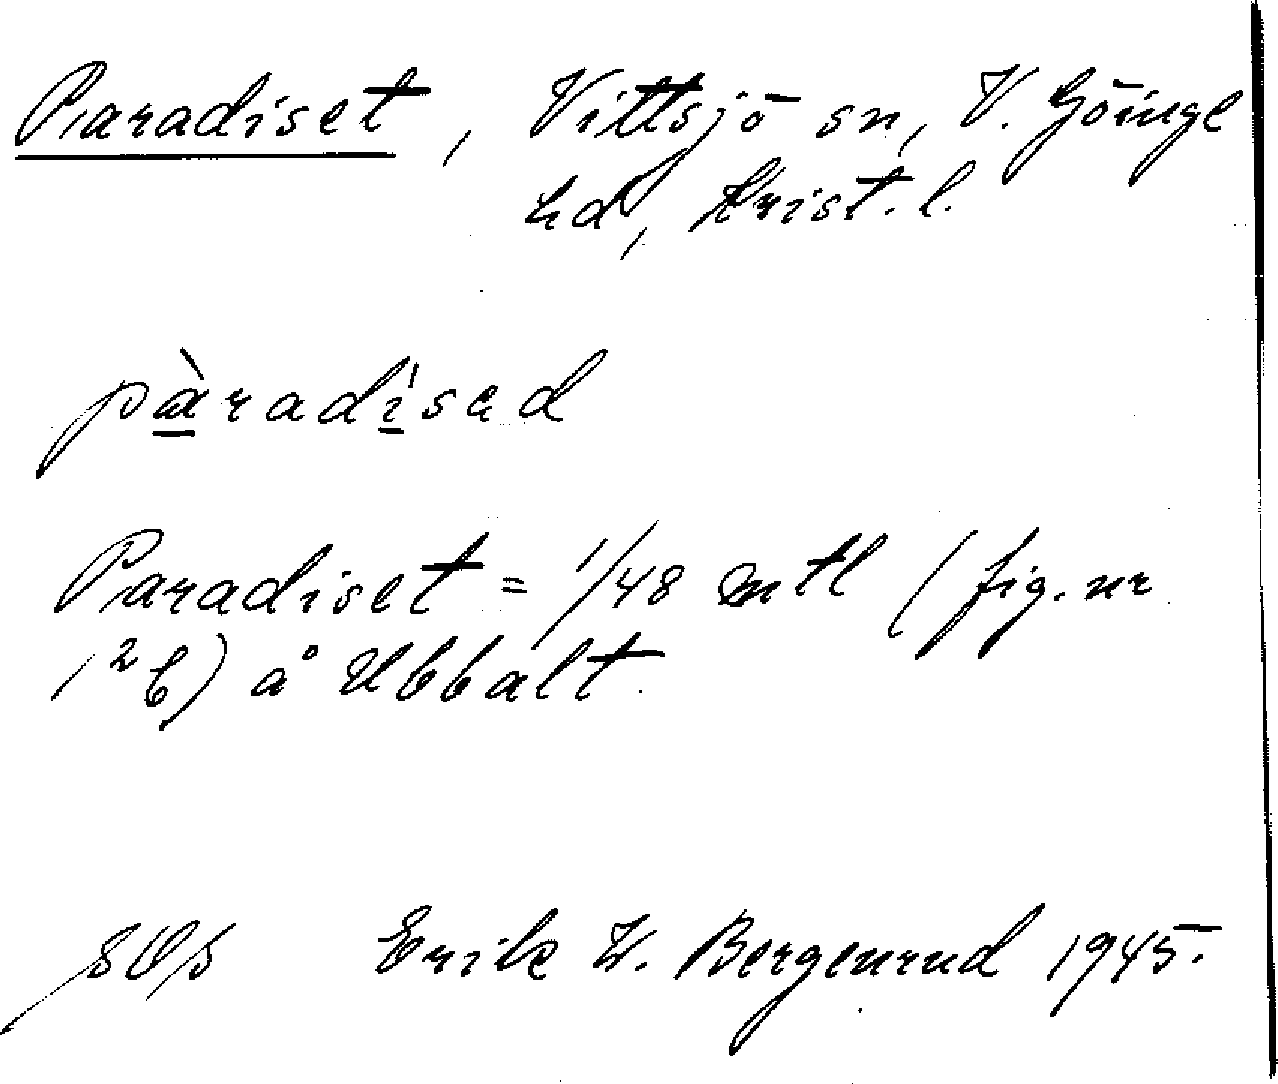 Paradiset, Vittsjö sn, V. Göinge
hd, Krist. l.
pàradísad
Paradiset = 1/48 mtl (fig. nr
1²b) å Ubbalt.
Erik W. Bergenrud 1945.